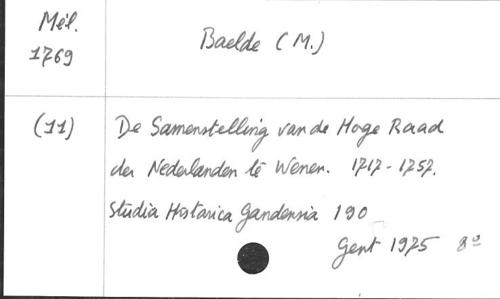 Mél.
1769
Baelde (M.)
(11)
De Samenstelling van de Hoge Raad
der Nederlanden te Wenen. 1717-1757.
Studia Historica Gandensia 190
Gent 1975 8º